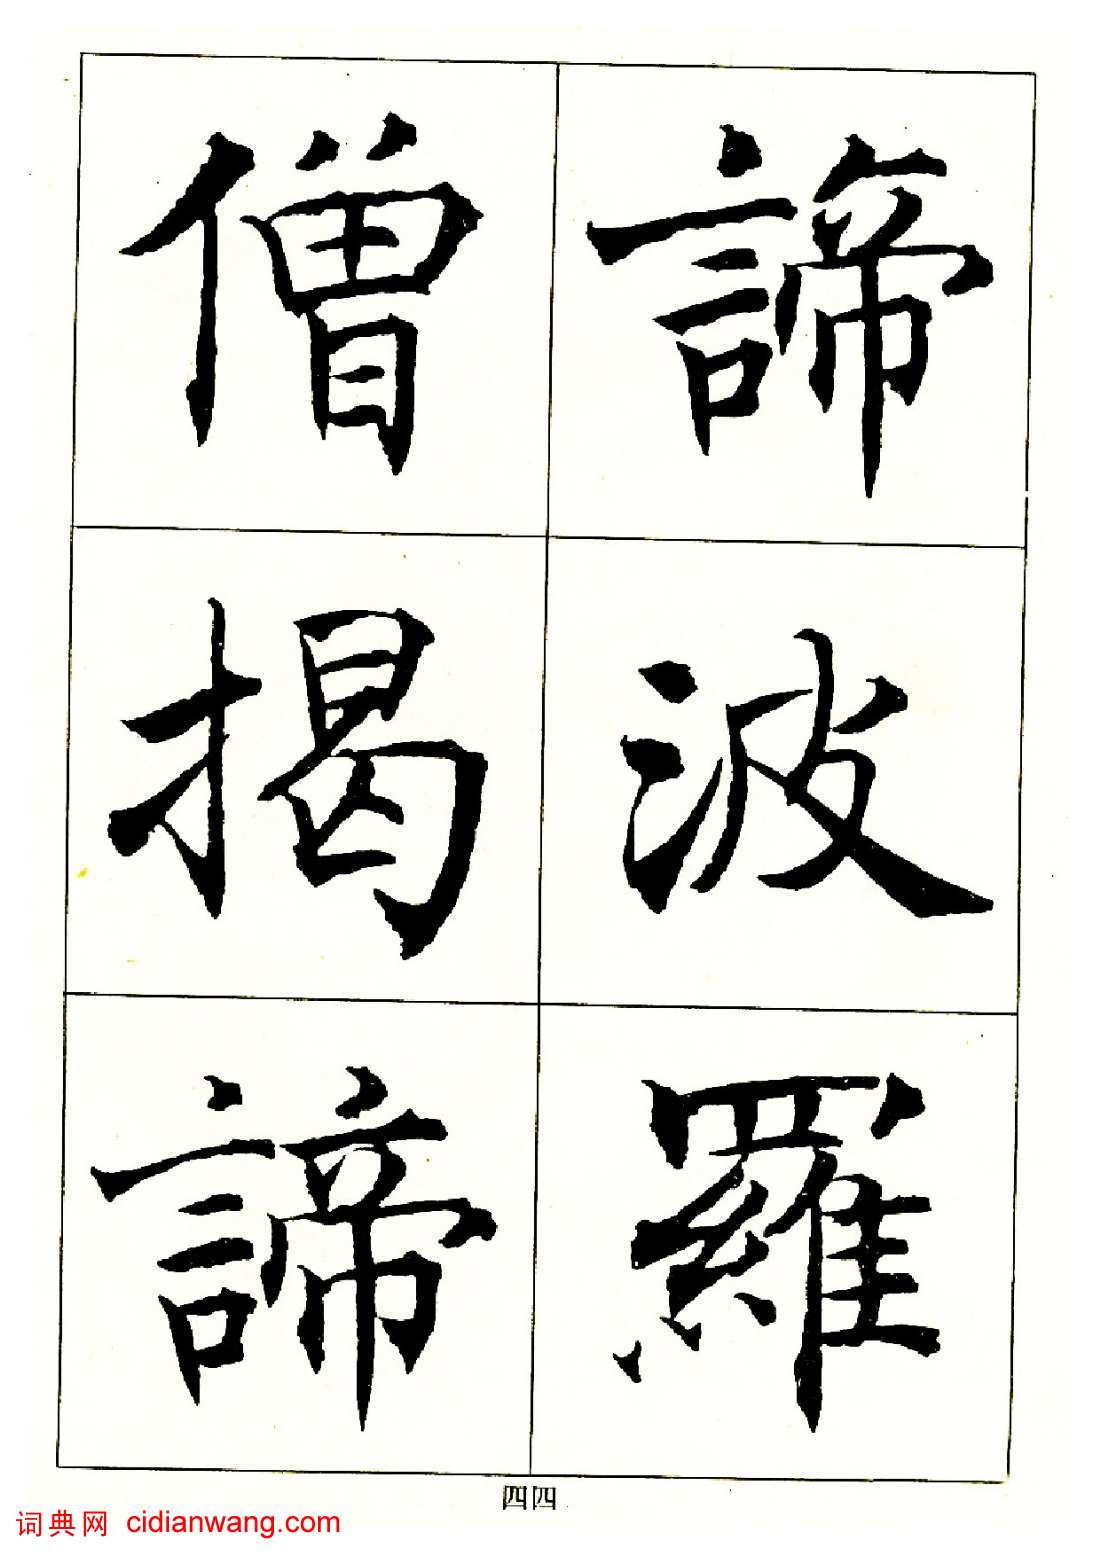 諦波羅
僧揭諦
四四
词典网 cidianwang.com